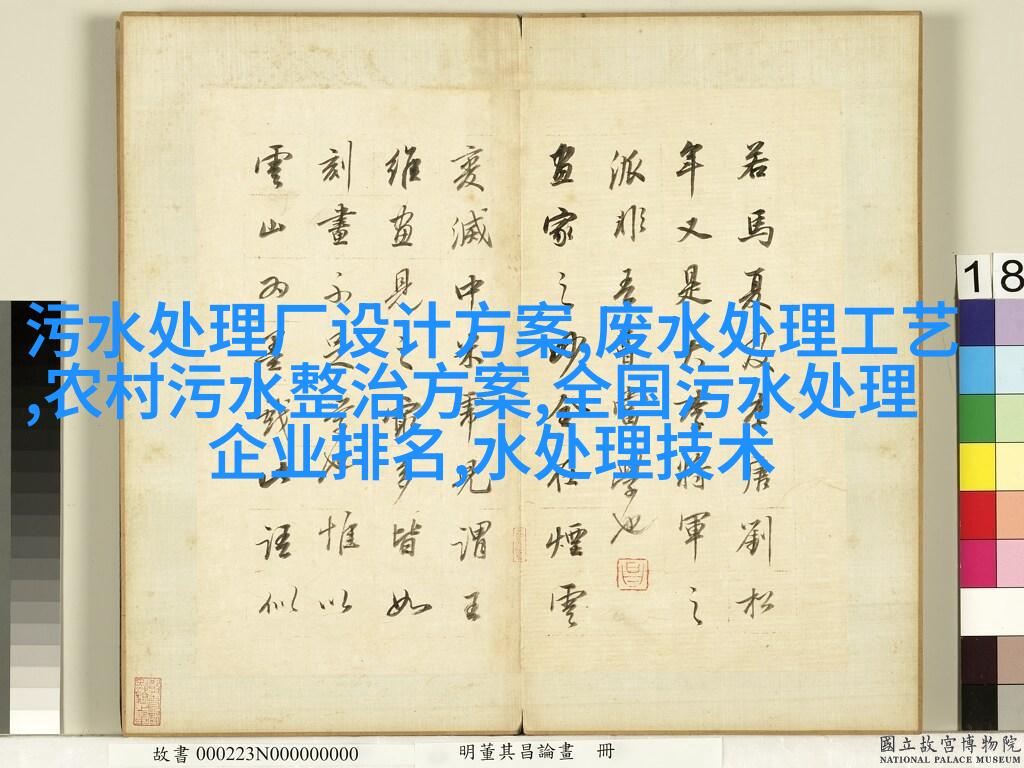 污水处理厂设计方案,废水处理工艺
,农村污水整治方案,全国污水处理
企业排名,水处理技术
若馬夏及李唐劉松
年又是大李將軍之
派非吾曹當學也
畫家之妙全在煙雲
變滅中米虎兒謂王
維畫見之最多皆如
刻畫不足學也惟以
雲山為墨戲此語似
18
故書 000223N000000000
明董其昌論畫 冊
國立故宮博物院
NATIONAL PALACE MUSEUM